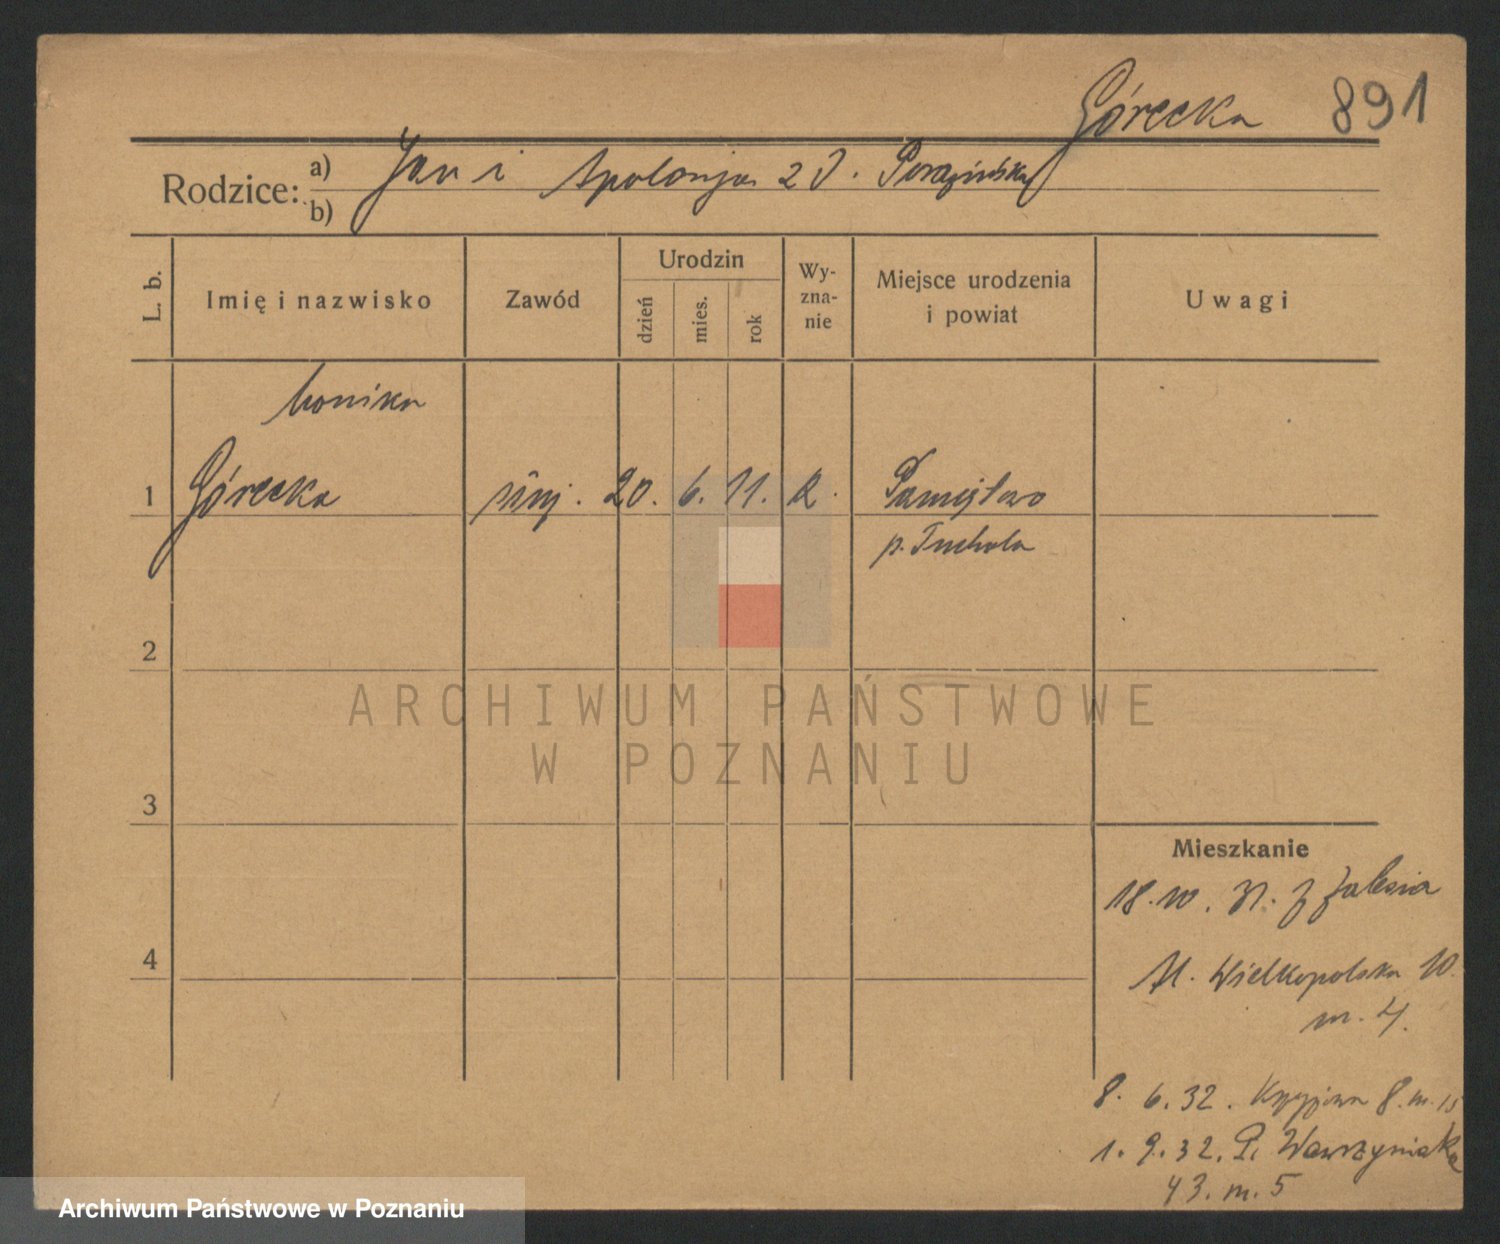 Górecka 891
Rodzice: a) Jan i Apolonja z d.
b)
L. b.
Imię i nazwisko
Zawód
Urodzin
dzień
mies.
rok
Wy-
zna-
nie
Miejsce urodzenia
i powiat
Uwagi
Monika
1 Górecka służ. 20. 6. 11. k.
p. Tuchola
2
3
4
Mieszkanie
18. 10. 31. z Zalesia
Wielkopolska 10.
m. 4.
8. 6. 32. 8. m. 15
1. 9. 32. P. Wawrzyniaka
43. m. 5
ARCHIWUM PAŃSTWOWE
W POZNANIU
Archiwum Państwowe w Poznaniu